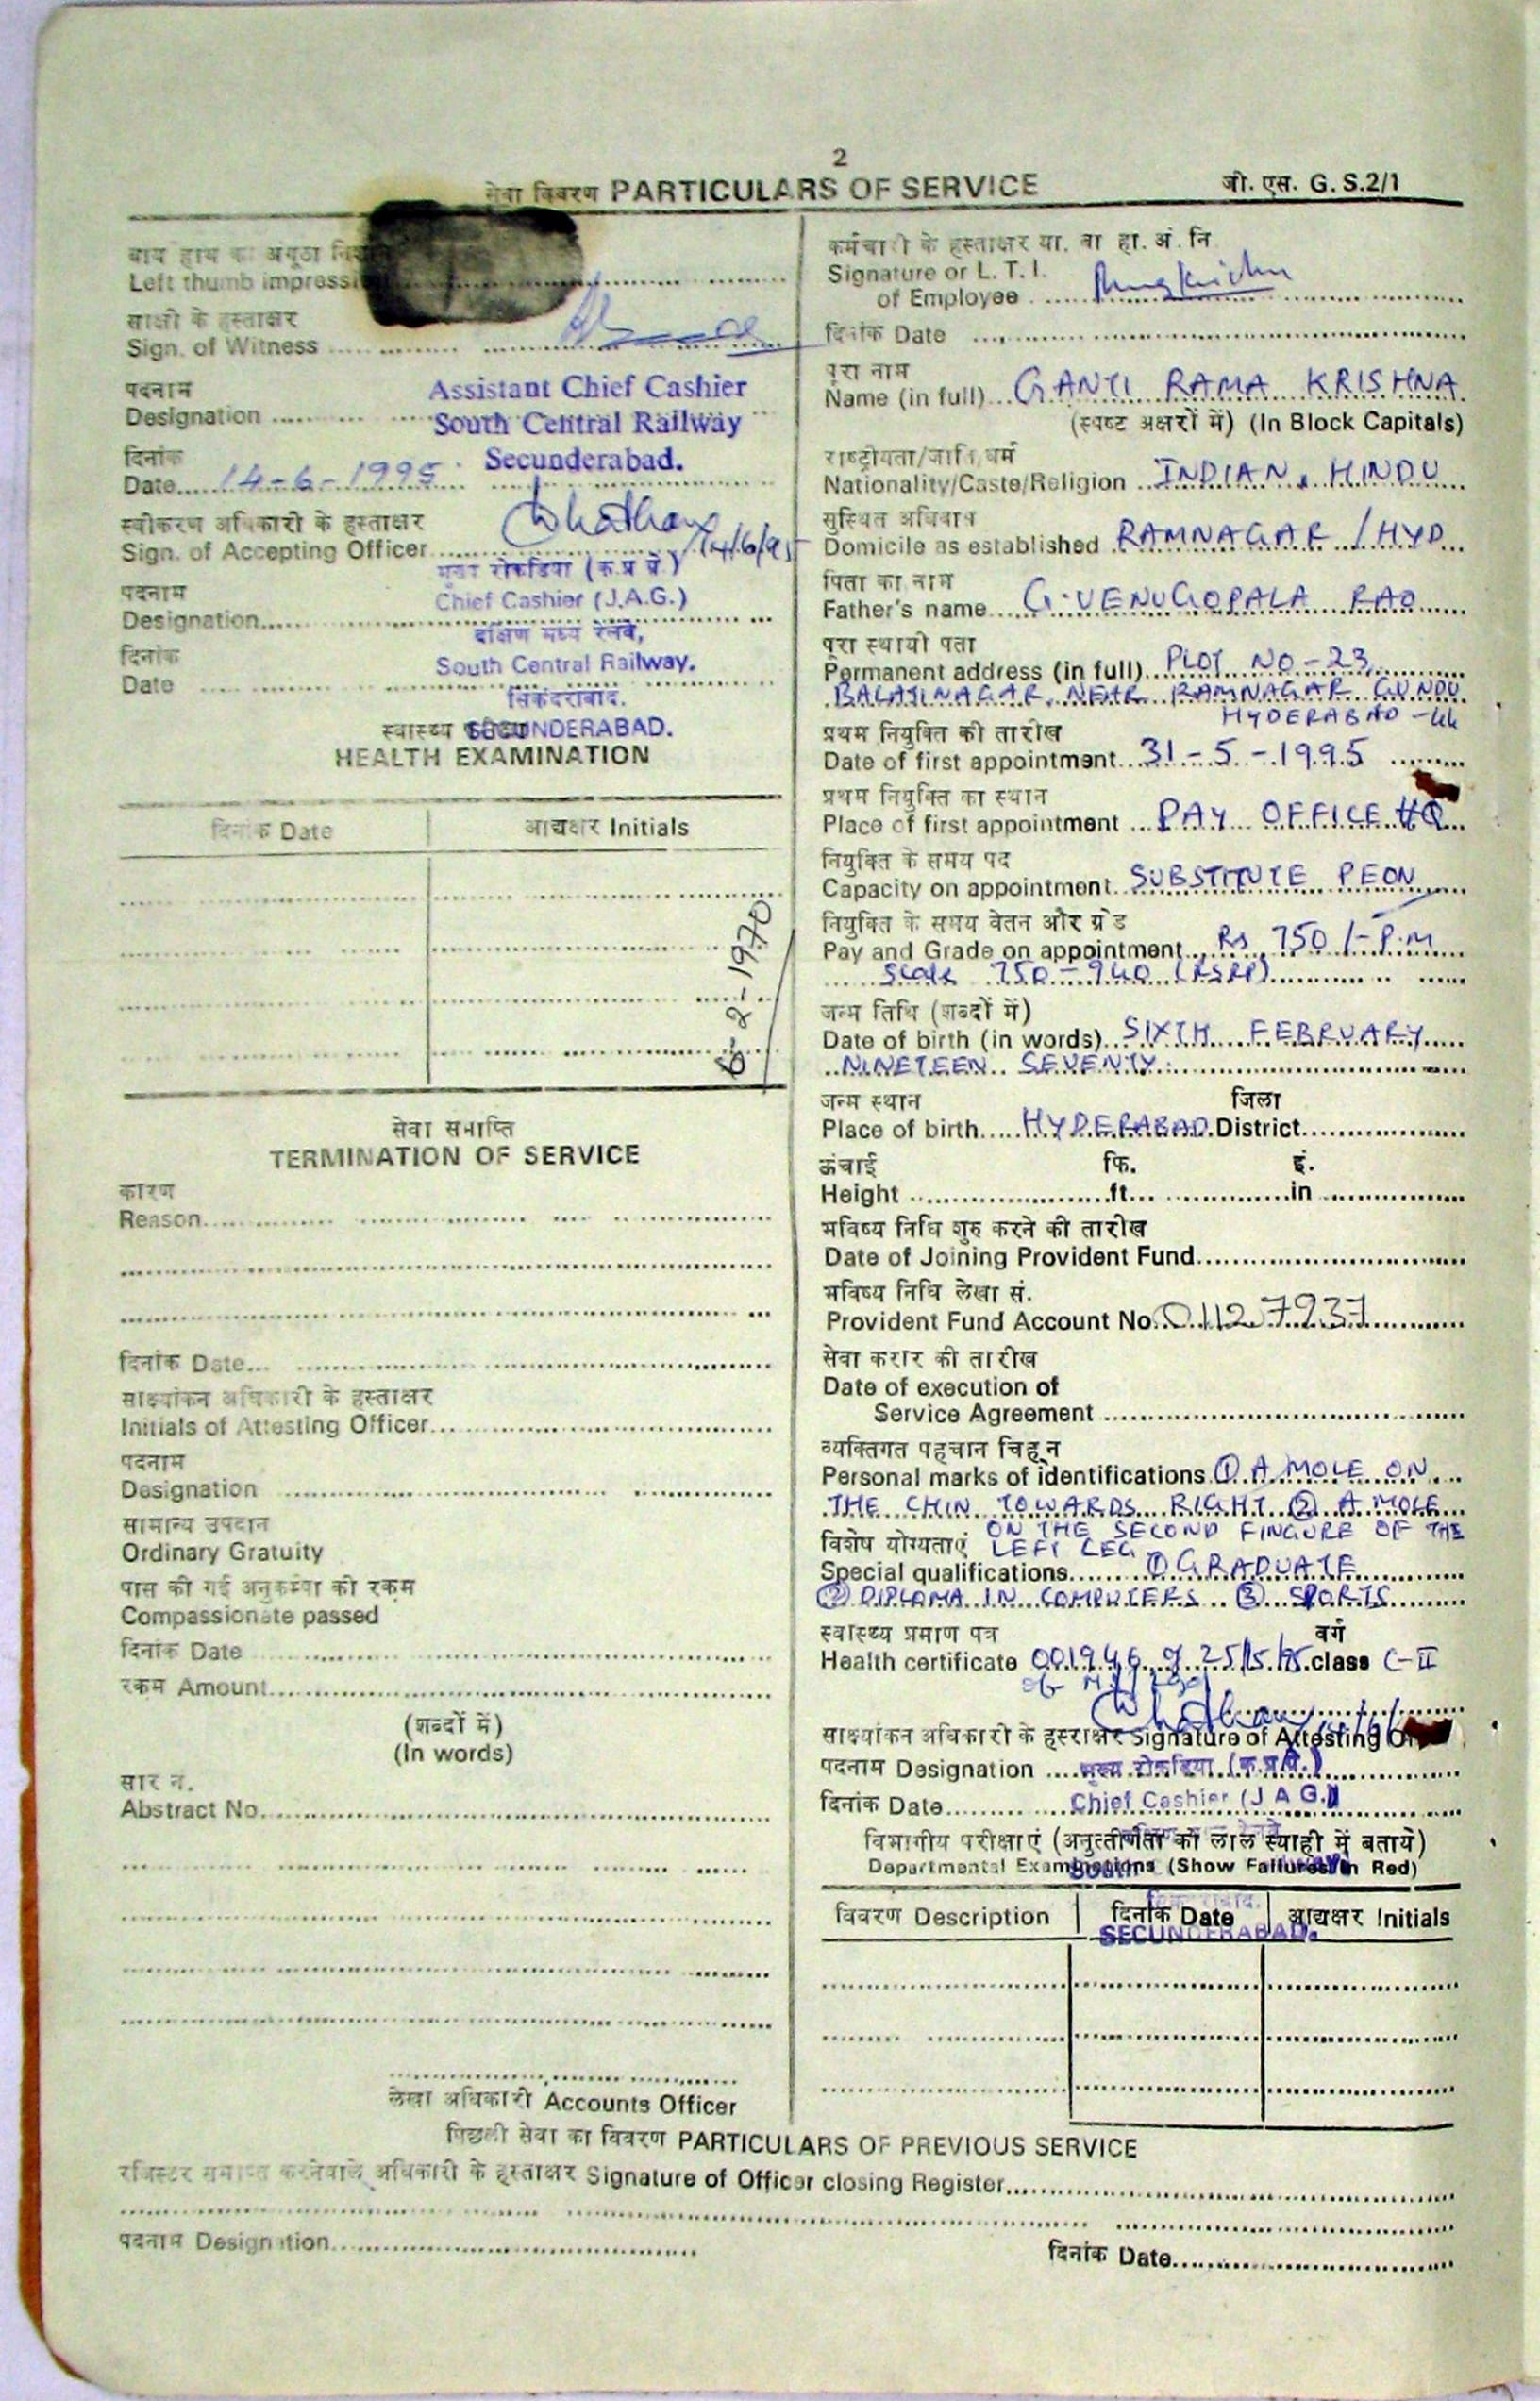 2
सेवा विवरण PARTICULARS OF SERVICE
जी. एस. G. S.2/1
Left thumb impress
साक्षी के हस्ताक्षर
Sign. of Witness
पदनाम
Designation
Assistant Chief Cashier
South Central Railway
Secunderabad.
दिनांक
Date 14-6-1995
स्वीकरण अधिकारी के हस्ताक्षर
Sign. of Accepting Officer 14/6/95
मुख्य रोकडिया (क.प्र.ग्रे.)
पदनाम
Chief Cashier (J.A.G.)
Designation
दक्षिण मध्य रेलवे,
दिनांक
South Central Railway.
Date
सिकंदराबाद.
स्वास्थ्य SECUNDERABAD.
HEALTH EXAMINATION
दिनांक Date आद्यक्षर Initials
6-2-1970
सेवा समाप्ति
TERMINATION OF SERVICE
कारण
Reason
दिनांक Date
साक्ष्यांकन अधिकारी के हस्ताक्षर
Initials of Attesting Officer
पदनाम
Designation
सामान्य उपदान
Ordinary Gratuity
पास की गई अनुकम्पा की रकम
Compassionate passed
दिनांक Date
रकम Amount
(शब्दों में)
(In words)
सार न.
Abstract No.
लेखा अधिकारी Accounts Officer
कर्मचारी के हस्ताक्षर या. बा हा. अं. नि
Signature or L. T. I.
of Employee
दिनांक Date
पूरा नाम
Name (in full) GANTI RAMA KRISHNA
(स्पष्ट अक्षरों में) (In Block Capitals)
राष्ट्रीयता/जाति/धर्म
Nationality/Caste/Religion INDIAN, HINDU
सुस्थित अधिवास
Domicile as established RAMNAGAR / HYD
पिता का नाम
Father's name G. VENUGOPALA RAO
पूरा स्थायी पता
Permanent address (in full) PLOT NO-23,
BALAJINAGAR, NEAR RAMNAGAR GUNDU
HYDERABAD-44
प्रथम नियुक्ति की तारीख
Date of first appointment 31-5-1995
प्रथम नियुक्ति का स्थान
Place of first appointment PAY OFFICE HQ
नियुक्ति के समय पद
Capacity on appointment SUBSTITUTE PEON
नियुक्ति के समय वेतन और ग्रेड
Pay and Grade on appointment Rs 750/- P.M
Scale 750-940 (RSRP)
जन्म तिथि (शब्दों में)
Date of birth (in words) SIXTH FEBRUARY
NINETEEN SEVENTY
जन्म स्थान जिला
Place of birth HYDERABAD District
ऊंचाई फि. इं.
Height ft. in
भविष्य निधि शुरु करने की तारीख
Date of Joining Provident Fund
भविष्य निधि लेखा सं.
Provident Fund Account No. 01127237
सेवा करार की तारीख
Date of execution of
Service Agreement
व्यक्तिगत पहचान चिह्न
Personal marks of identifications ① A MOLE ON
THE CHIN TOWARDS RIGHT ② A MOLE
ON THE SECOND FINGURE OF THE
विशेष योग्यताएं LEFT LEG
Special qualifications ① GRADUATE
② DIPLOMA IN COMPUTERS ③ SPORTS
स्वास्थ्य प्रमाण पत्र वर्ग
Health certificate 001946 25/5/95 class C-II
साक्ष्यांकन अधिकारी के हस्ताक्षर Signature of Attesting
पदनाम Designation मुख्य रोकडिया (क.प्र.ग्रे.)
दिनांक Date Chief Cashier (J A G.)
विभागीय परीक्षाएं (अनुत्तीर्णता को लाल स्याही में बतायें)
Departmental Examinations (Show Failures in Red)
विवरण Description दिनांक Date आद्यक्षर Initials
SECUNDERABAD.
पिछली सेवा का विवरण PARTICULARS OF PREVIOUS SERVICE
रजिस्टर समाप्त करनेवाले अधिकारी के हस्ताक्षर Signature of Officer closing Register
पदनाम Designation
दिनांक Date